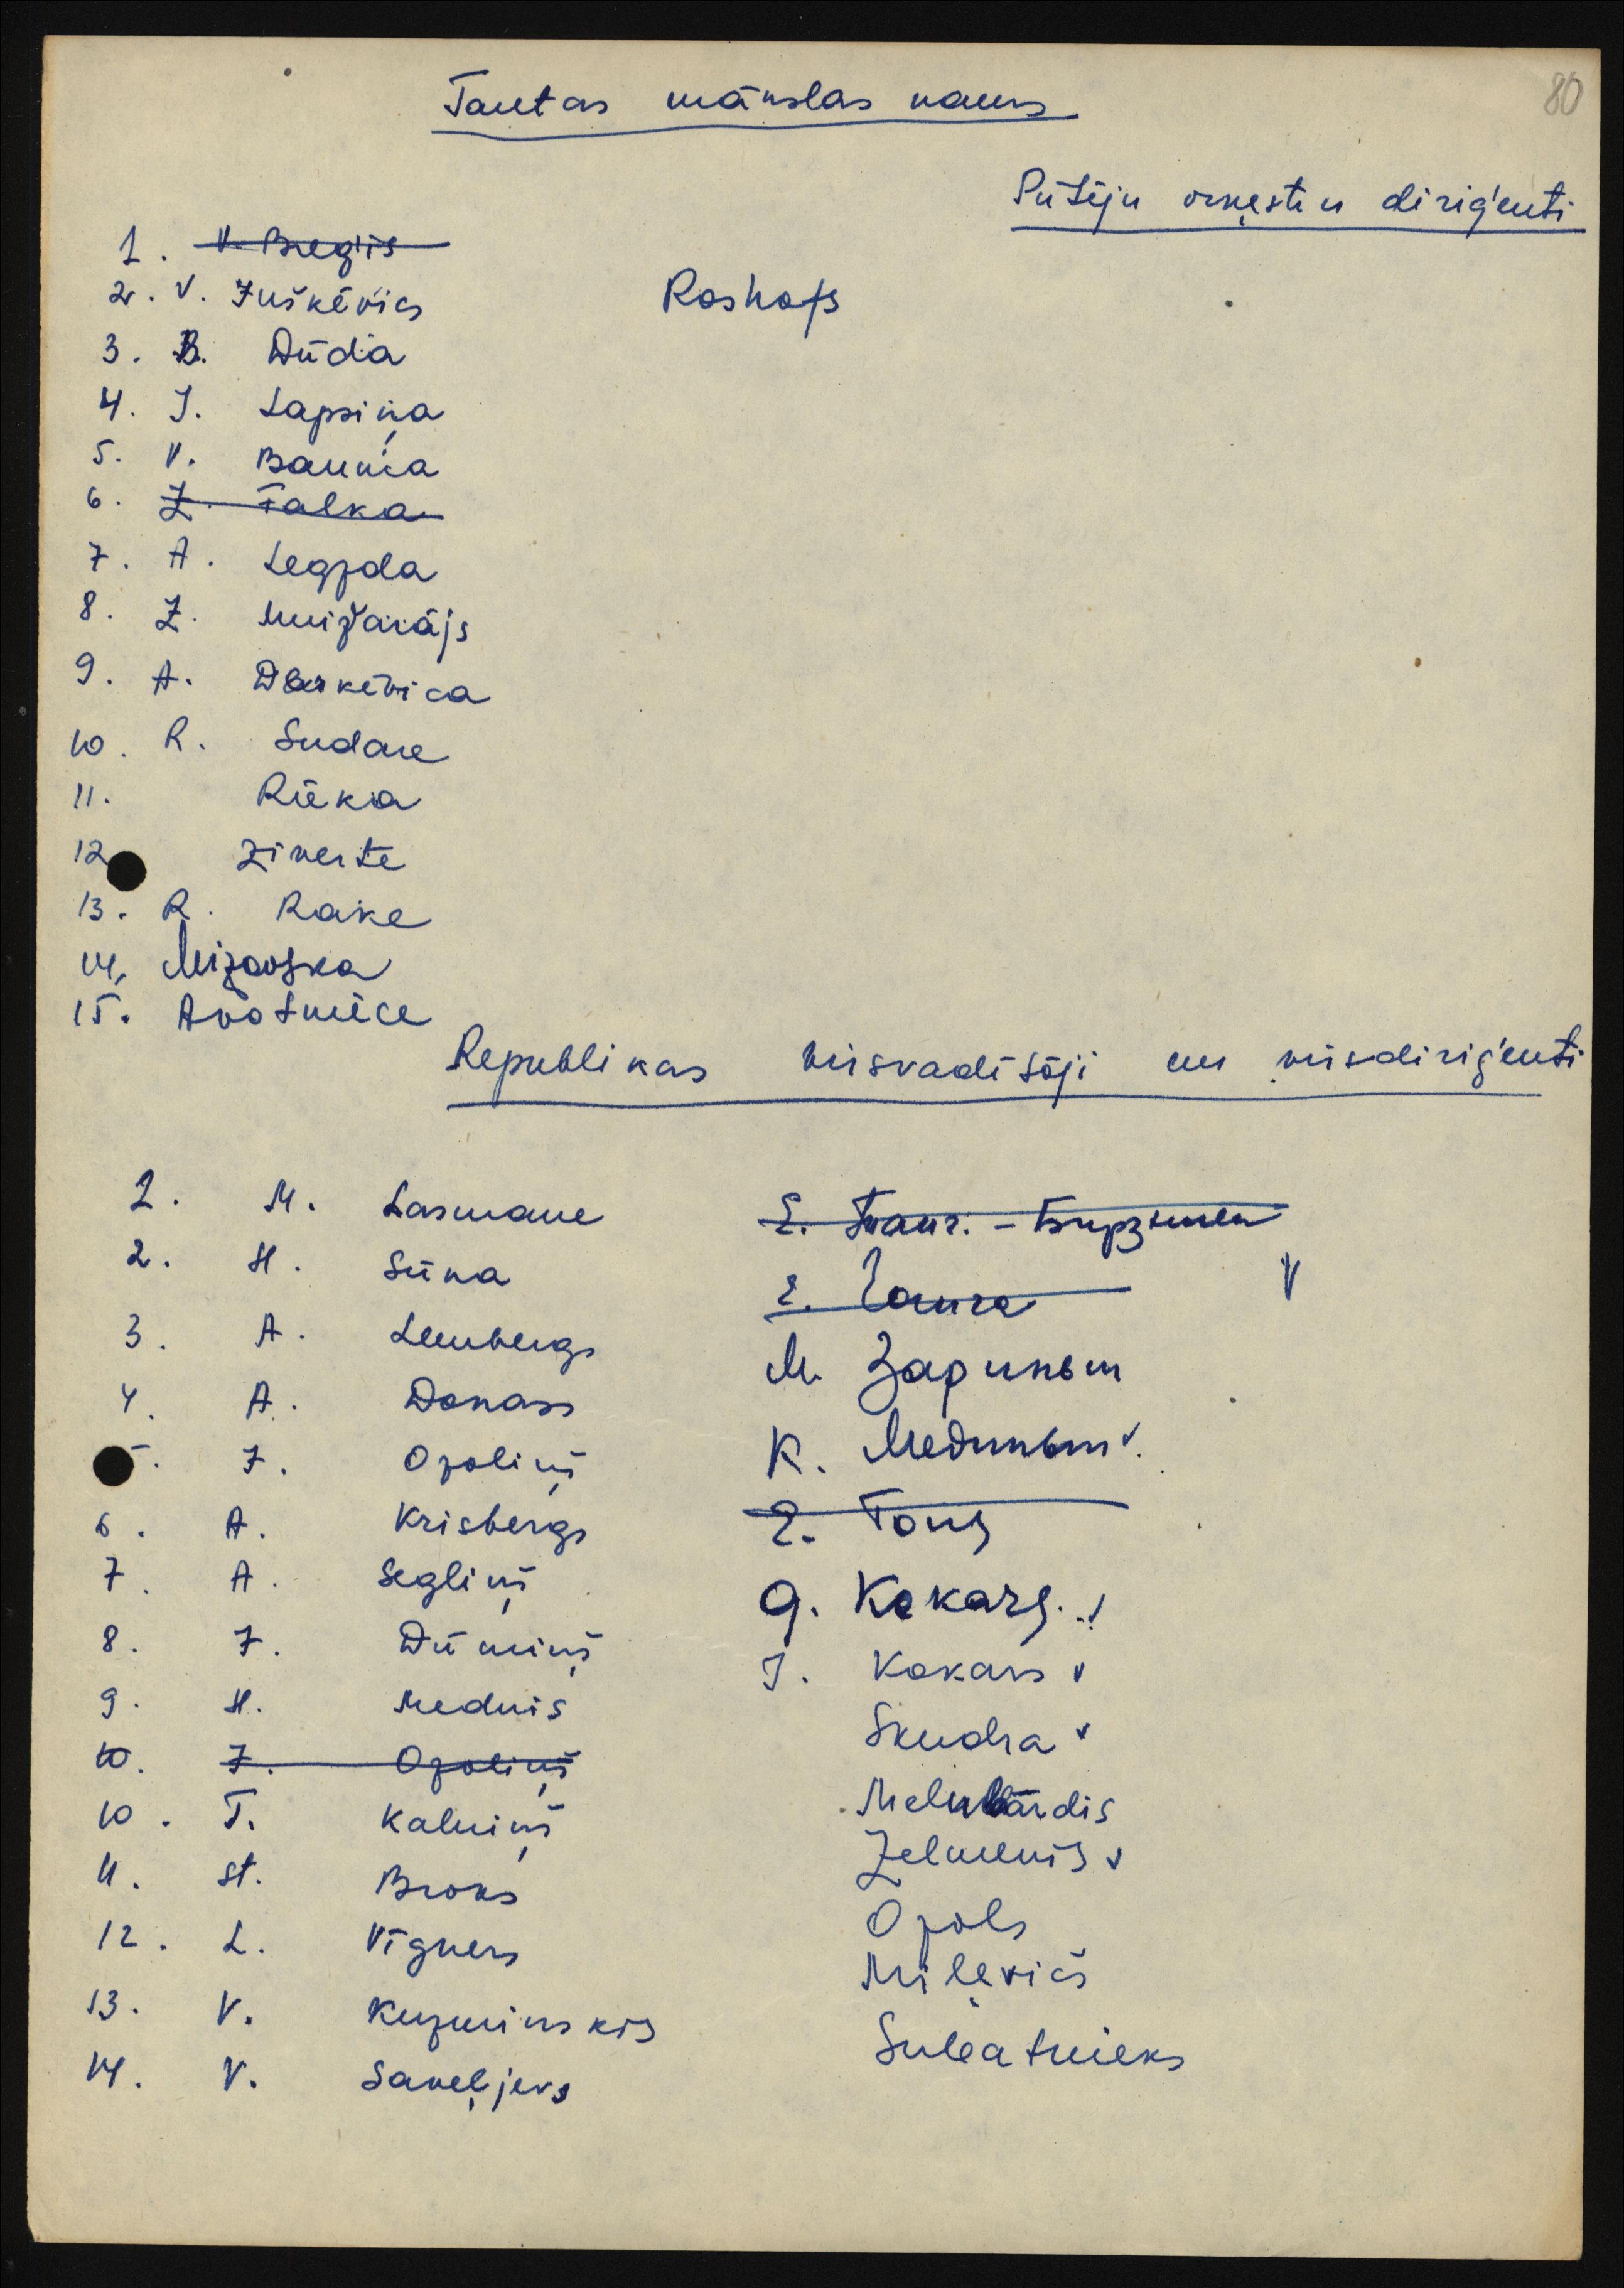 80
Tautas mākslas nams
Pūtēju orķestru diriģenti
1. V. Breģis
2. V. Juškēvics
Roshofs
3. B. Dūda
4. J. Lapsiņa
5. V. Bauma
6. Z. Falka
7. A. Legzda
8. Z. Muižarājs
9. A. Daskēvica
10. R. Sudare
11. Rieka
12. Ziverte
13. R. Rake
14. Mizovska
15. Avotniece
Republikas virsvadītāji un virsdiriģenti
1. M. Lasmane
2. H. Sūna
3. A. Lembergs
4. A. Donass
5. J. Ozoliņš
6. A. Krisbergs
7. A. Segliņš
8. J. Dūmiņš
9. H. Mednis
10. J. Ozoliņš
10. T. Kalniņš
11. St. Broks
12. L. Vīgners
13. V. Kuzminskis
14. V. Saveļjevs
E. - Бирзитен
E. V
М. Зариньш
К. Мединьш v
E. Тонс
G. Kokars. v
I. Kokars v
Skudra v
Melnbārdis
Zelmenis v
Ozols
Miļevičs
Subatnieks